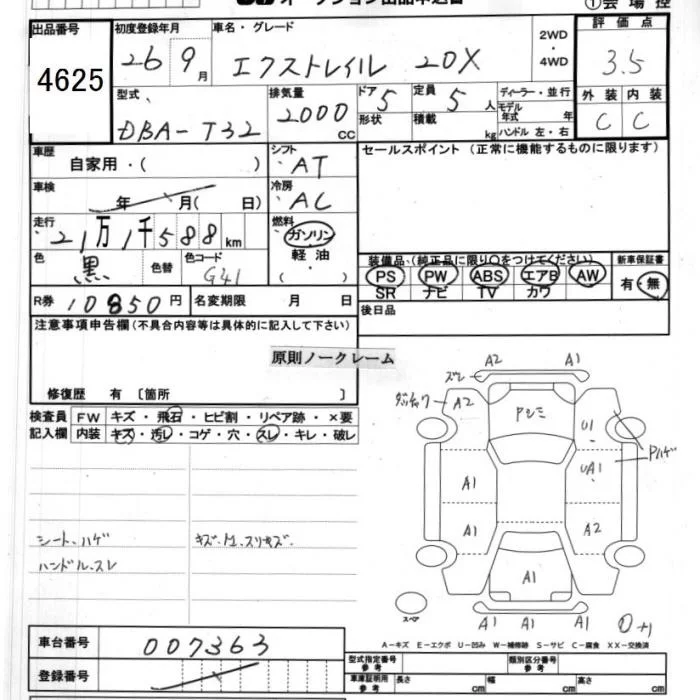 オークション出品申込書
①会場控
出品番号 初度登録年月 車名・グレード 評価点
4625 26 9月 エクストレイル 20X 2WD・4WD 3.5
型式 排気量 ドア 定員 ディーラー・並行 外装 内装
DBA-T32 2000 CC 5 5人 モデル年式 年 C C
形状 積載 kg ハンドル 左・右
車歴 自家用・( ) シフト AT セールスポイント (正常に機能するものに限ります)
車検 年 月( 日) 冷房 AC
走行 21万1千588km 燃料 ガソリン・軽油・( )
色 黒 色替 色コード G41
装備品 (純正品に限り○をつけてください) 新車保証書
PS PW ABS エアB AW 有・無
SR ナビ TV カワ
R券 10850円 名変期限 月 日 後日品
注意事項申告欄(不具合内容等は具体的に記入して下さい)
原則ノークレーム
修復歴 有 〔箇所 〕
検査員記入欄 FW キズ・飛石・ヒビ割・リペア跡・×要
内装 キズ・汚レ・コゲ・穴・スレ・キレ・破レ
シート、ハゲ
ハンドル、スレ
A2 A1
ズレ
A2 Pシミ U1
Pハゲ
A1 UA1
A1 A2
A1
A1 A1 A1
スペア
A-キズ E-エクボ U-凹み W-補修跡 S-サビ C-腐食 XX-交換済
車台番号 007363
登録番号
型式指定番号 参考 類別区分番号 参考
車庫証明用 参考 長さ cm 幅 cm 高さ cm